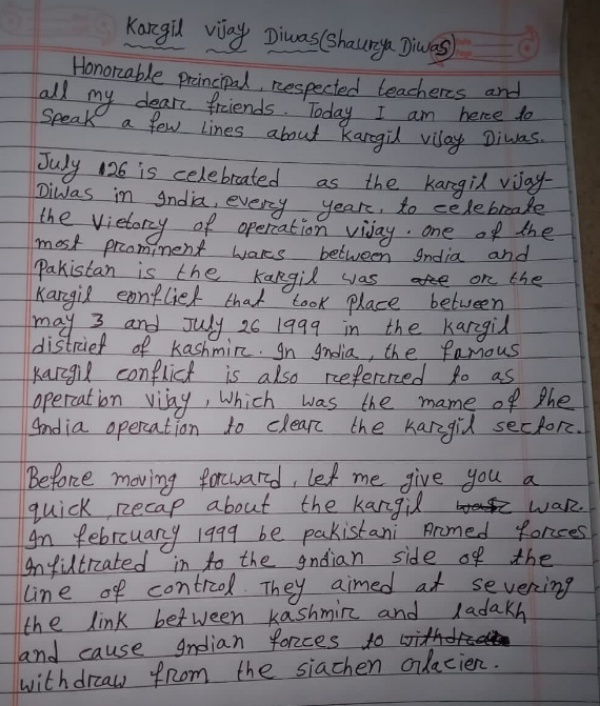 Kargil vijay Diwas(Shaurya Diwas)
Honorable principal, respected teachers and
all my dear friends. Today I am here to
speak a few lines about kargil vijay Diwas.
July 26 is celebrated as the kargil vijay
Diwas in India, every year, to celebrate
the victory of operation vijay. one of the
most prominent wars between India and
Pakistan is the kargil was or the
Kargil conflict that took place between
may 3 and July 26 1999 in the kargil
district of kashmir. In India, the famous
kargil conflict is also referred to as
operation vijay, which was the mame of the
India operation to clear the kargil sector.
Before moving forward, let me give you a
quick recap about the kargil war.
In february 1999 be pakistani Armed forces
Infiltrated in to the Indian side of the
Line of control. They aimed at severing
the link between kashmir and ladakh
and cause Indian forces to
withdraw from the siachen Glacier.